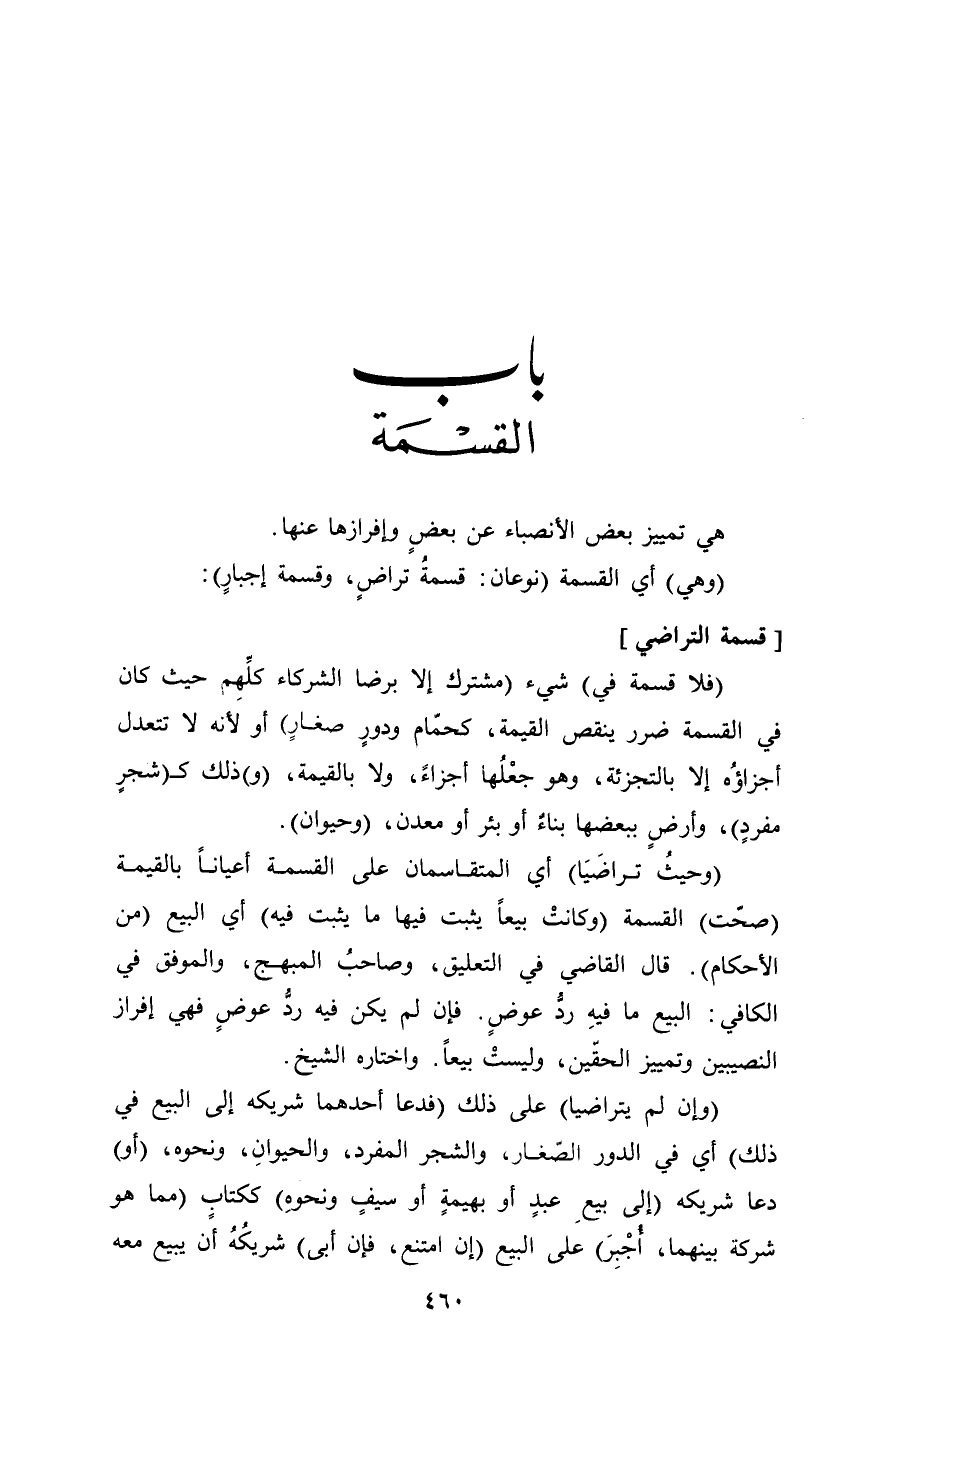 باب
القسمة
هي تمييز بعض الأنصباء عن بعضٍ وإفرازها عنها.
(وهي) أي القسمة (نوعان: قسمةُ تراضٍ، وقسمة إجبارٍ):
[ قسمة التراضي ]
(فلا قسمة في) شيء (مشترك إلا برضا الشركاء كلِّهم حيث كان
في القسمة ضرر ينقص القيمة، كحمّام ودورٍ صغارٍ) أو لأنه لا تتعدل
أجزاؤُه إلا بالتجزئة، وهو جعْلُها أجزاءً، ولا بالقيمة، (و)ذلك كـ(شجرٍ
مفردٍ)، وأرضٍ ببعضها بناءٌ أو بئر أو معدن، (وحيوان).
(وحيثُ تراضَيَا) أي المتقاسمان على القسمة أعياناً بالقيمة
(صحّت) القسمة (وكانتْ بيعاً يثبت فيها ما يثبت فيه) أي البيع (من
الأحكام). قال القاضي في التعليق، وصاحبُ المبهج، والموفق في
الكافي: البيع ما فيهِ ردُّ عوضٍ. فإن لم يكن فيه ردُّ عوضٍ فهي إفراز
النصيبين وتمييز الحقّين، وليستْ بيعاً. واختاره الشيخ.
(وإن لم يتراضيا) على ذلك (فدعا أحدهما شريكه إلى البيع في
ذلك) أي في الدور الصّغار، والشجر المفرد، والحيوانِ، ونحوه، (أو)
دعا شريكه (إلى بيعِ عبدٍ أو بهيمةٍ أو سيفٍ ونحوهِ) ككتابٍ (مما هو
شركة بينهما، أُجْبِرَ) على البيع (إن امتنع، فإن أبى) شريكُهُ أن يبيع معه
٤٦٠